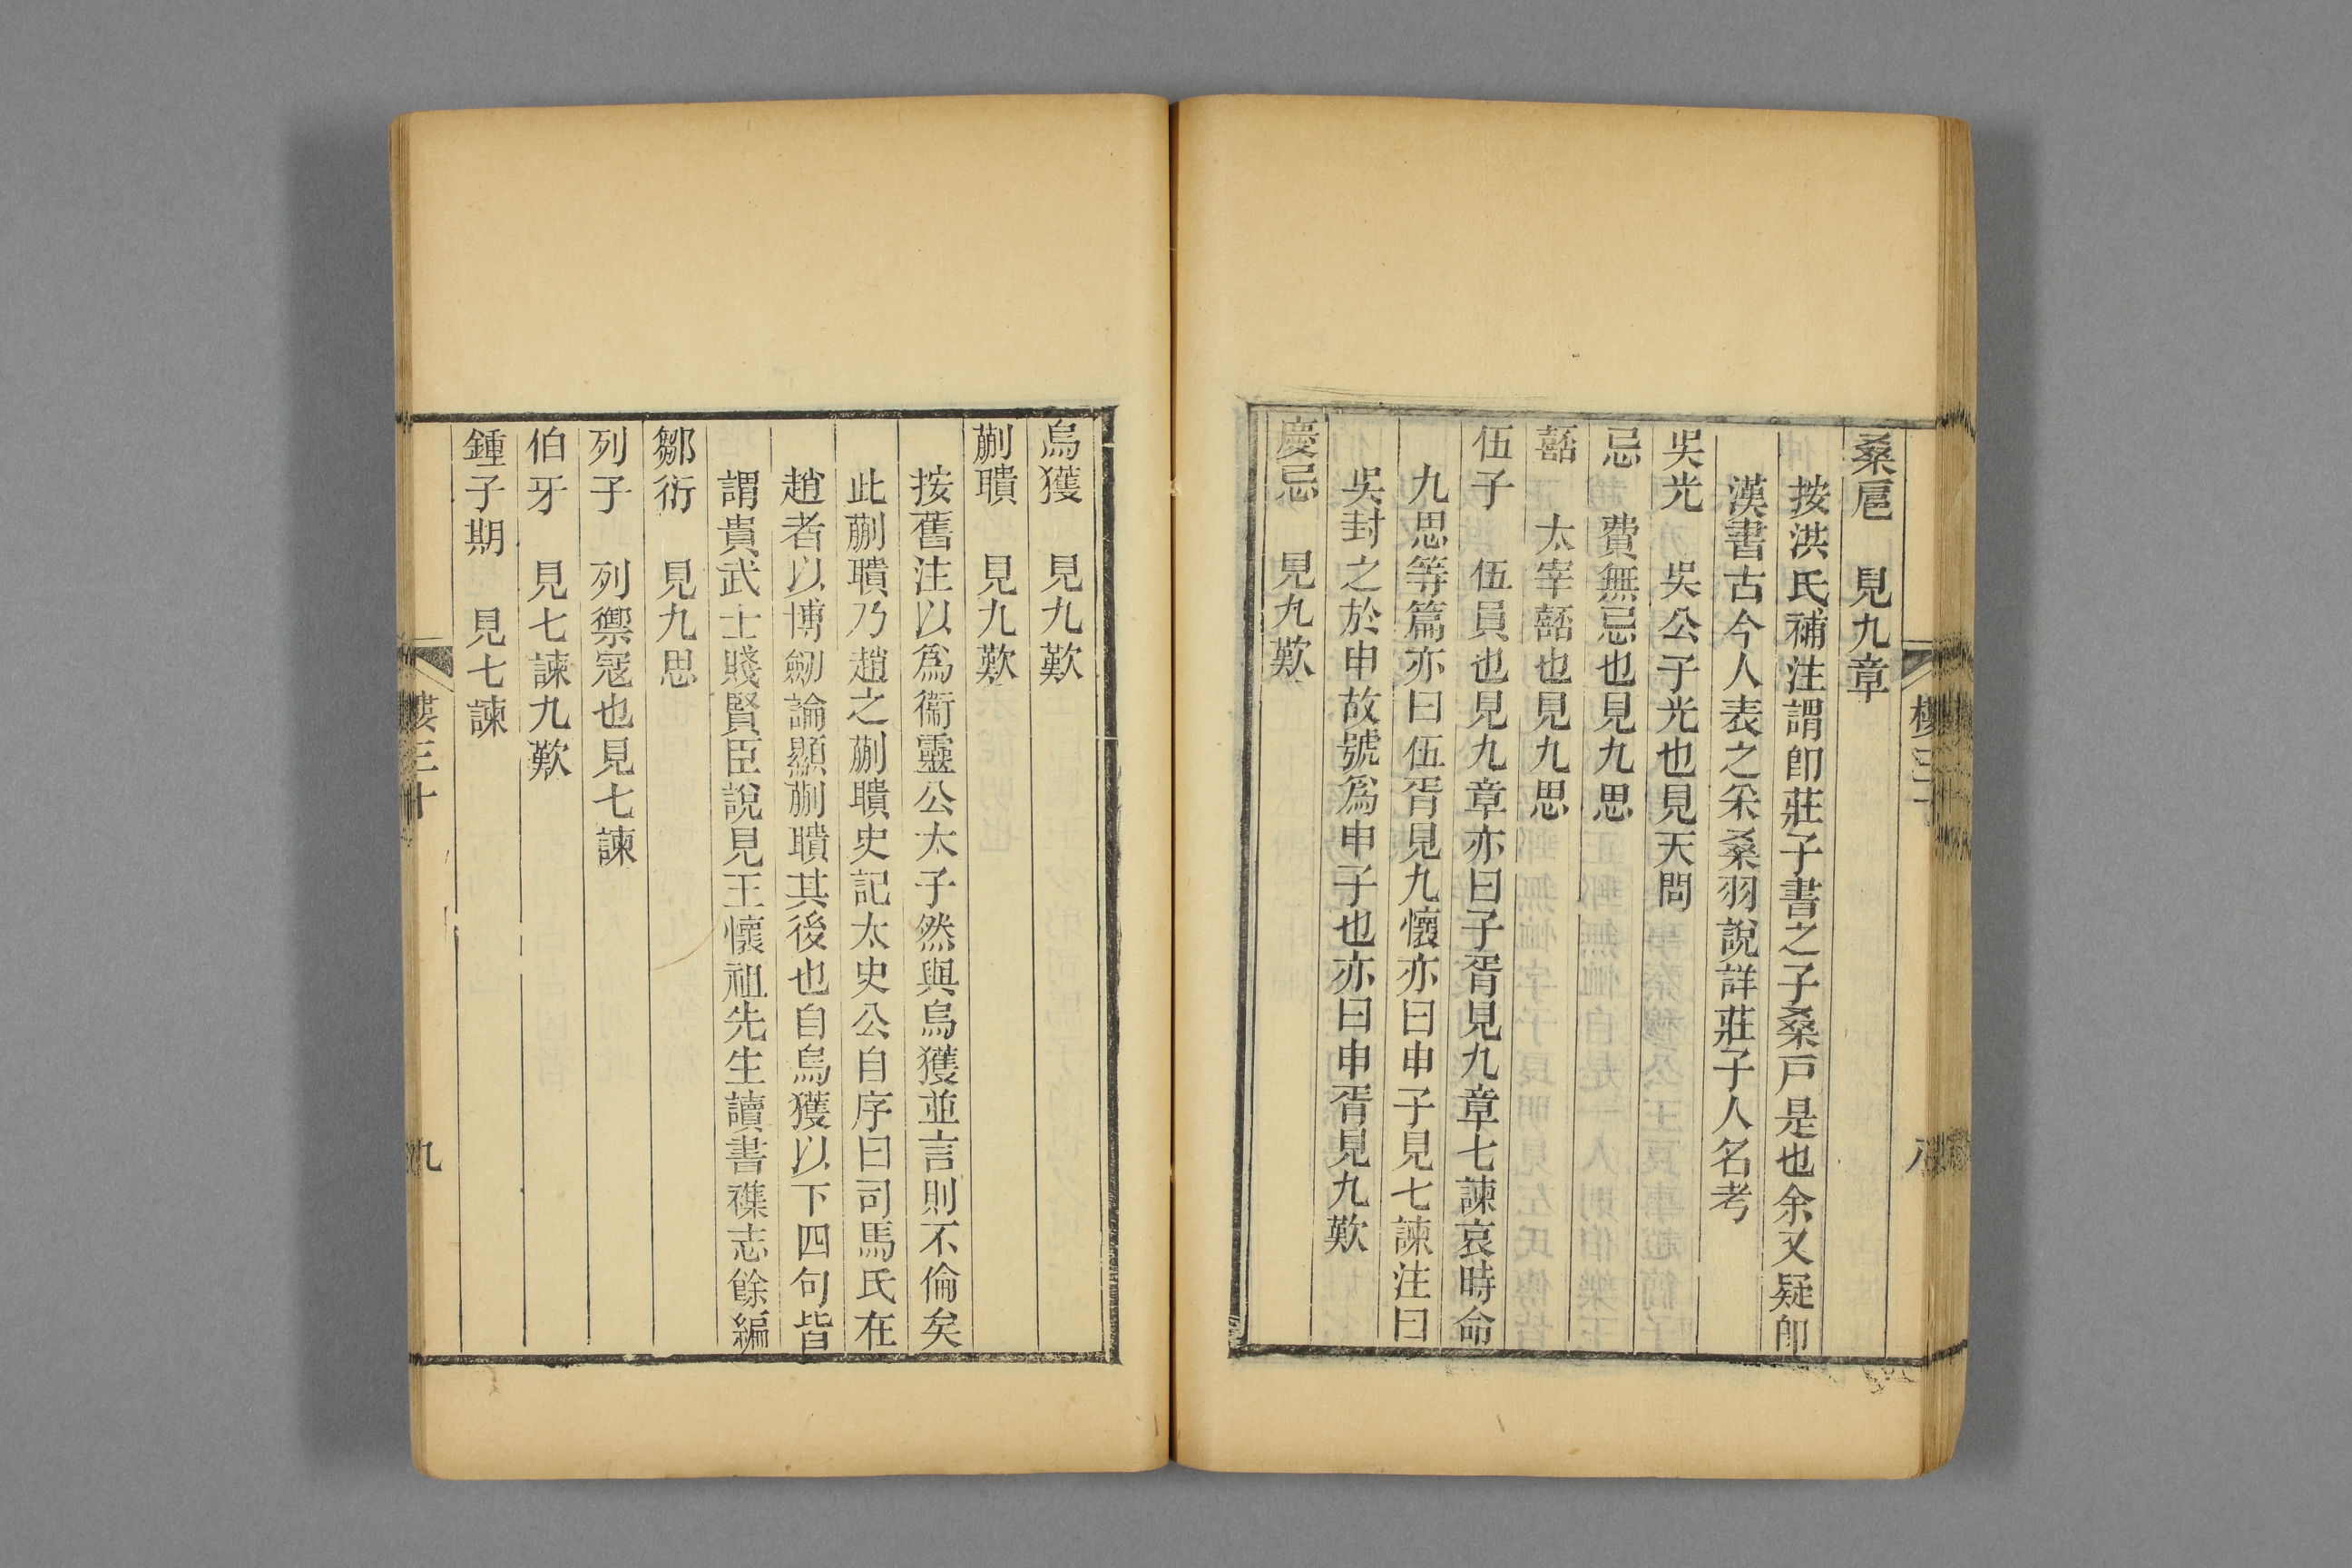 桑扈　見九章
按洪氏補注謂卽莊子書之子桑戸是也余又疑卽
漢書古今人表之采桑羽說詳莊子人名考
吳光　吳公子光也見天問
忌　費無忌也見九思
嚭　太宰嚭也見九思
伍子　伍員也見九章亦曰子胥見九章七諫哀時命
九思等篇亦曰伍胥見九懷亦曰申子見七諫注曰
吳封之於申故號爲申子也亦曰申胥見九歎
慶忌　見九歎
烏獲　見九歎
蒯聵　見九歎
按舊注以爲衞靈公太子然與烏獲並言則不倫矣
此蒯聵乃趙之蒯聵史記太史公自序曰司馬氏在
趙者以博劒論顯蒯聵其後也自烏獲以下四句皆
謂貴武士賤賢臣說見王懷祖先生讀書襍志餘編
鄒衍　見九思
列子　列禦寇也見七諫
伯牙　見七諫九歎
鍾子期　見七諫
樓三十
九